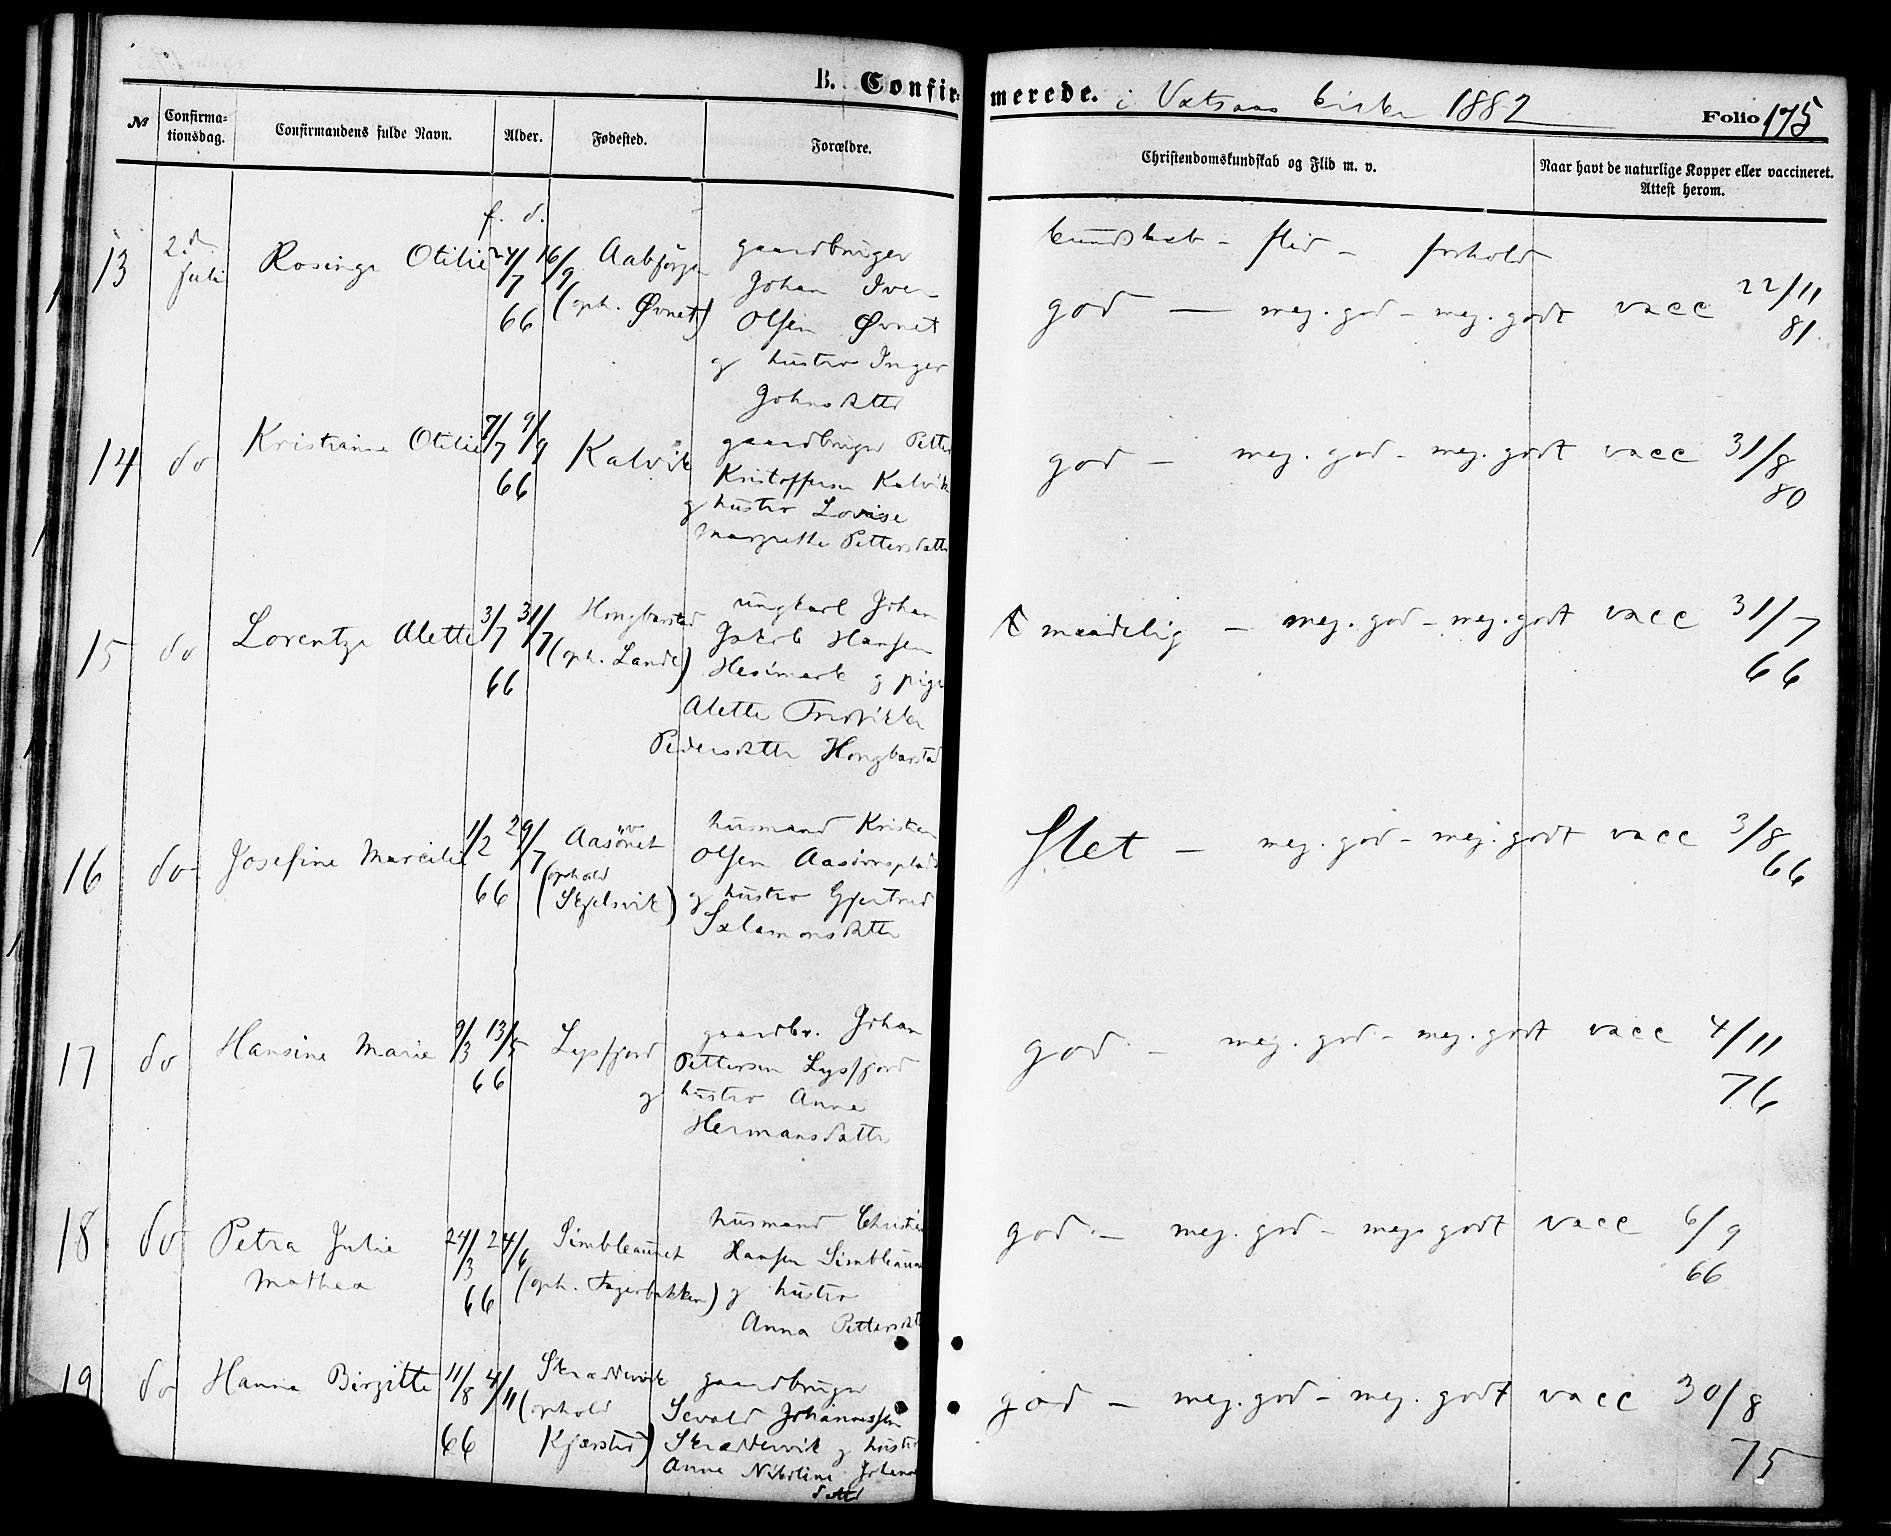 B. Confirmerede. i Vatsaas kirke 1882 Folio 175
№ Confirmationsdag. Confirmandens fulde Navn. Alder. Fødested. Forældre. Christendomskundskab og Flid m. v. Naar havt de naturlige Kopper eller vaccineret. Attest herom.
f. d.
kundskab - flid - forhold
13 2d Juli Rosinga Otilie 24/7 66 16/9 Aabjørgen (oph. Øvnet)
gaardbruger
Johan Iver
Olsen Øvnet
og hustru Inger
Johnsdatter
god — meg. god - meg. godt vacc 22/11 81.
14 do Kristianna Otilie 7/7 66 9/9 Kalvik
gaardbruger Petter
Kristoffersen Kalvik
og hustru Lovise
Margrethe Pettersdatter
god - meg. god - meg. godt vacc 31/8 80
15 do Lorentze Alette 3/7 66 31/7 Hongbarstad (oph. Lande)
ungkarl Johan
Jakob Hansen
Hesimark og pige
Alette Fredrikke
Pedersdatter Hongbarstad
maadelig - meg. god - meg. godt vacc 31/7 66
16 do Josefine Marcilie 1/2 66 29/7 Aasövnet (ophold Skjelsvik)
husmand Kristian
Olsen Aasövnsplads
og hustru Gjertrud
Salamonsdatter
Slet - meg. god - meg. godt vacc 3/8 66
17 do Hansine Marie 9/3 66 13/5 Lysfjord
gaardbr. Johan
Pettersen Lysfjord
og hustru Anne
Hermansdatter
god - meg. god - meg. godt vacc 4/11 76
18 do Petra Julie Mathea 24/3 66 24/6 Simbleaunet (oph. Fagerbakken)
husmand Christian
Hansen Simbleaunet
og hustru
Anna Pettersdtr
god - meg. god - meg. godt vacc 6/9 66
19 do Hanna Birgitte 11/8 66 4/11 Skraddervik (ophold Kjærstad)
gaardbruger
Sevald Johannessen
Skraddervik og hustru
Anne Nikoline Johanns
datter
god - meg. god - meg. godt vacc 30/8 75